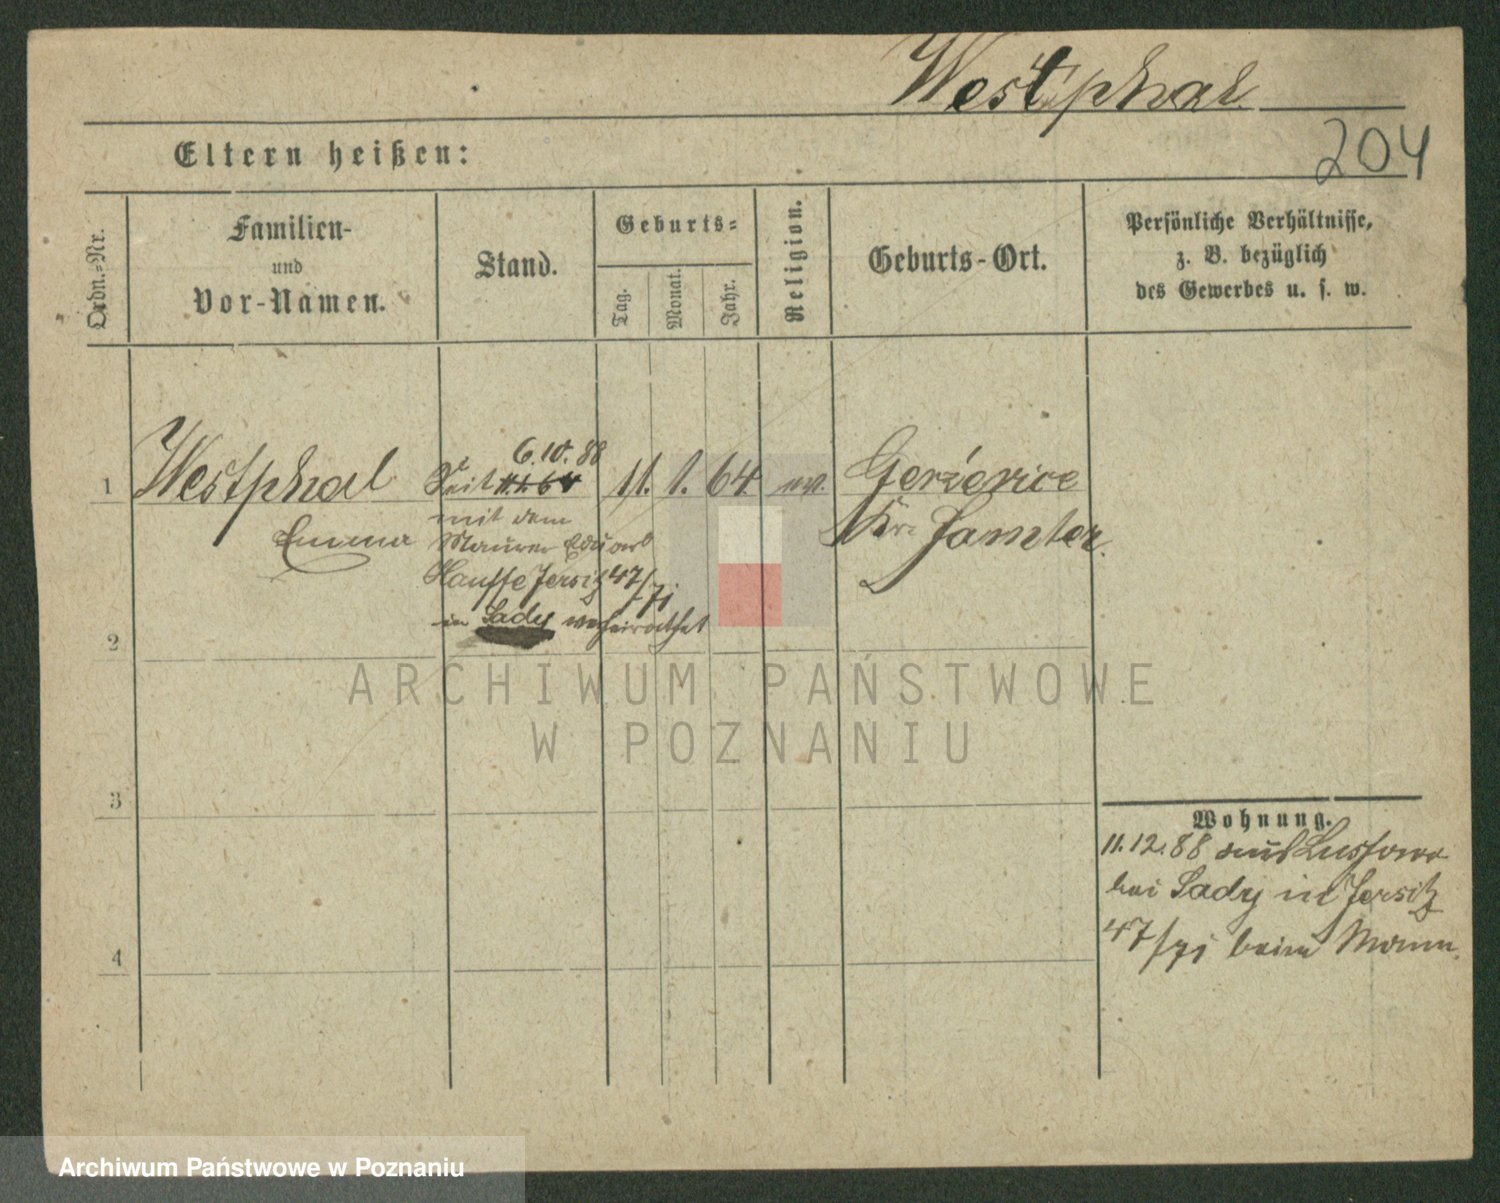 Westphal
204
Eltern heißen:
Ordn.-Nr.
Familien-
und
Vor-Namen.
Stand.
Geburts-
Tag.
Monat.
Jahr.
Religion.
Geburts-Ort.
Persönliche Verhältnisse,
z. B. bezüglich
des Gewerbes u. s. w.
6.10.88
1 Westphal Seit 11.1.64 11. 1. 64 ev.
Emma
Kr. Samter.
mit dem
Maurer Eduard
Hauffe Jersitz 47/71
in Sady verheirathet
2
3
4
ARCHIWUM PAŃSTWOWE
W POZNANIU
Wohnung.
11.12.88 aus Lussowo
bei Sady in Jersitz
47/71 beim Mann.
Archiwum Państwowe w Poznaniu